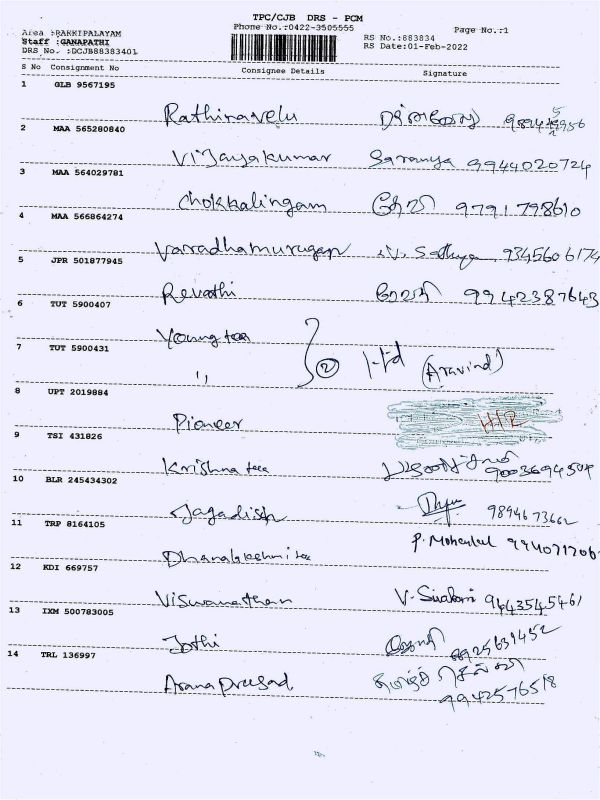 TPC/CJB DRS - PCM
Phone No.:0422-3505555
Page No.:1
Area :PAKKIPALAYAM
Staff :GANAPATHI
DRS No. :DCJB88383401
RS No.:883834
RS Date:01-Feb-2022
S No Consignment No Consignee Details Signature
1 GLB 9567195
Rathinavelu
2 MAA 565280840
Vijayakumar Saranya 9944020724
3 MAA 564029781
Chokkalingam தேவி 9791798610
4 MAA 566864274
Varadhamurugan V. Sathya 9345606174
5 JPR 501877945
Revathi ரேவதி 9942387643
6 TUT 5900407
Young tex
7 TUT 5900431
" 2 (Aravind)
8 UPT 2019884
Pioneer H/R
9 TSI 431826
Krishna tex 9003694504
10 BLR 245434302
Jagadish 9894673662
11 TRP 8164105
Dhanalakshmi tex P. Mohanlal
12 KDI 669757
Viswanathan 9443545461
13 IXM 500783005
Jothi ஜோதி 8925639452
14 TRL 136997
Aranaprasad தமிழ்ச் செல்வி
9942576518